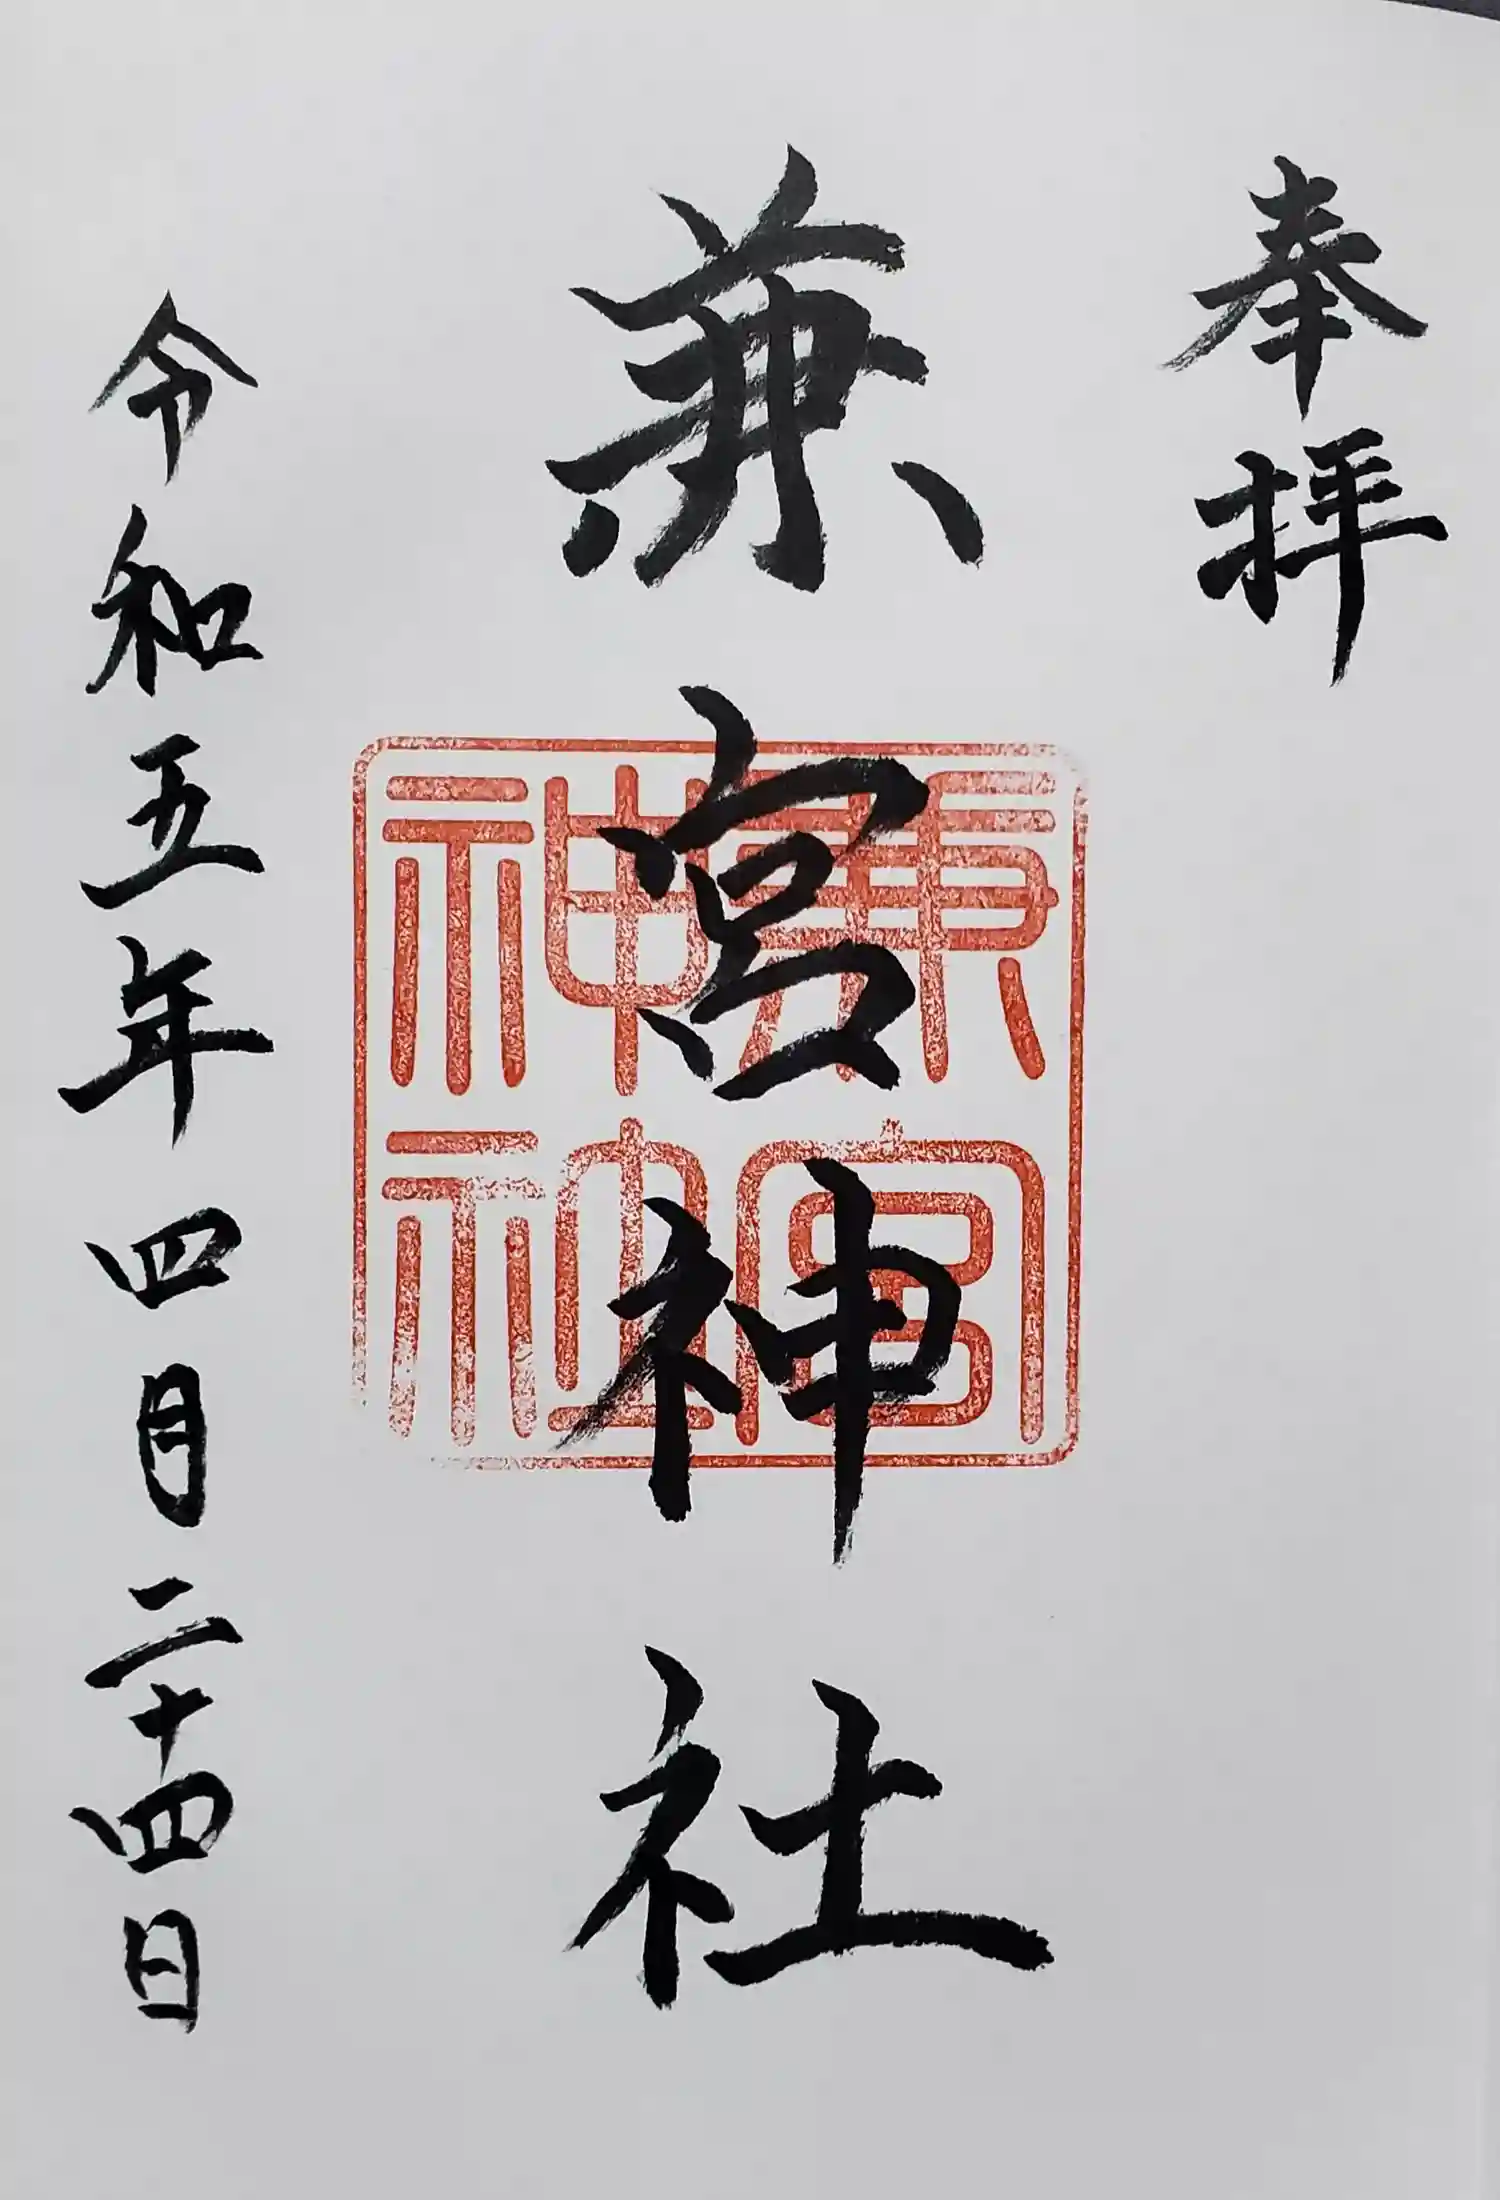 奉拝
兼宮神社
兼宮
神社
令和五年四月二十四日